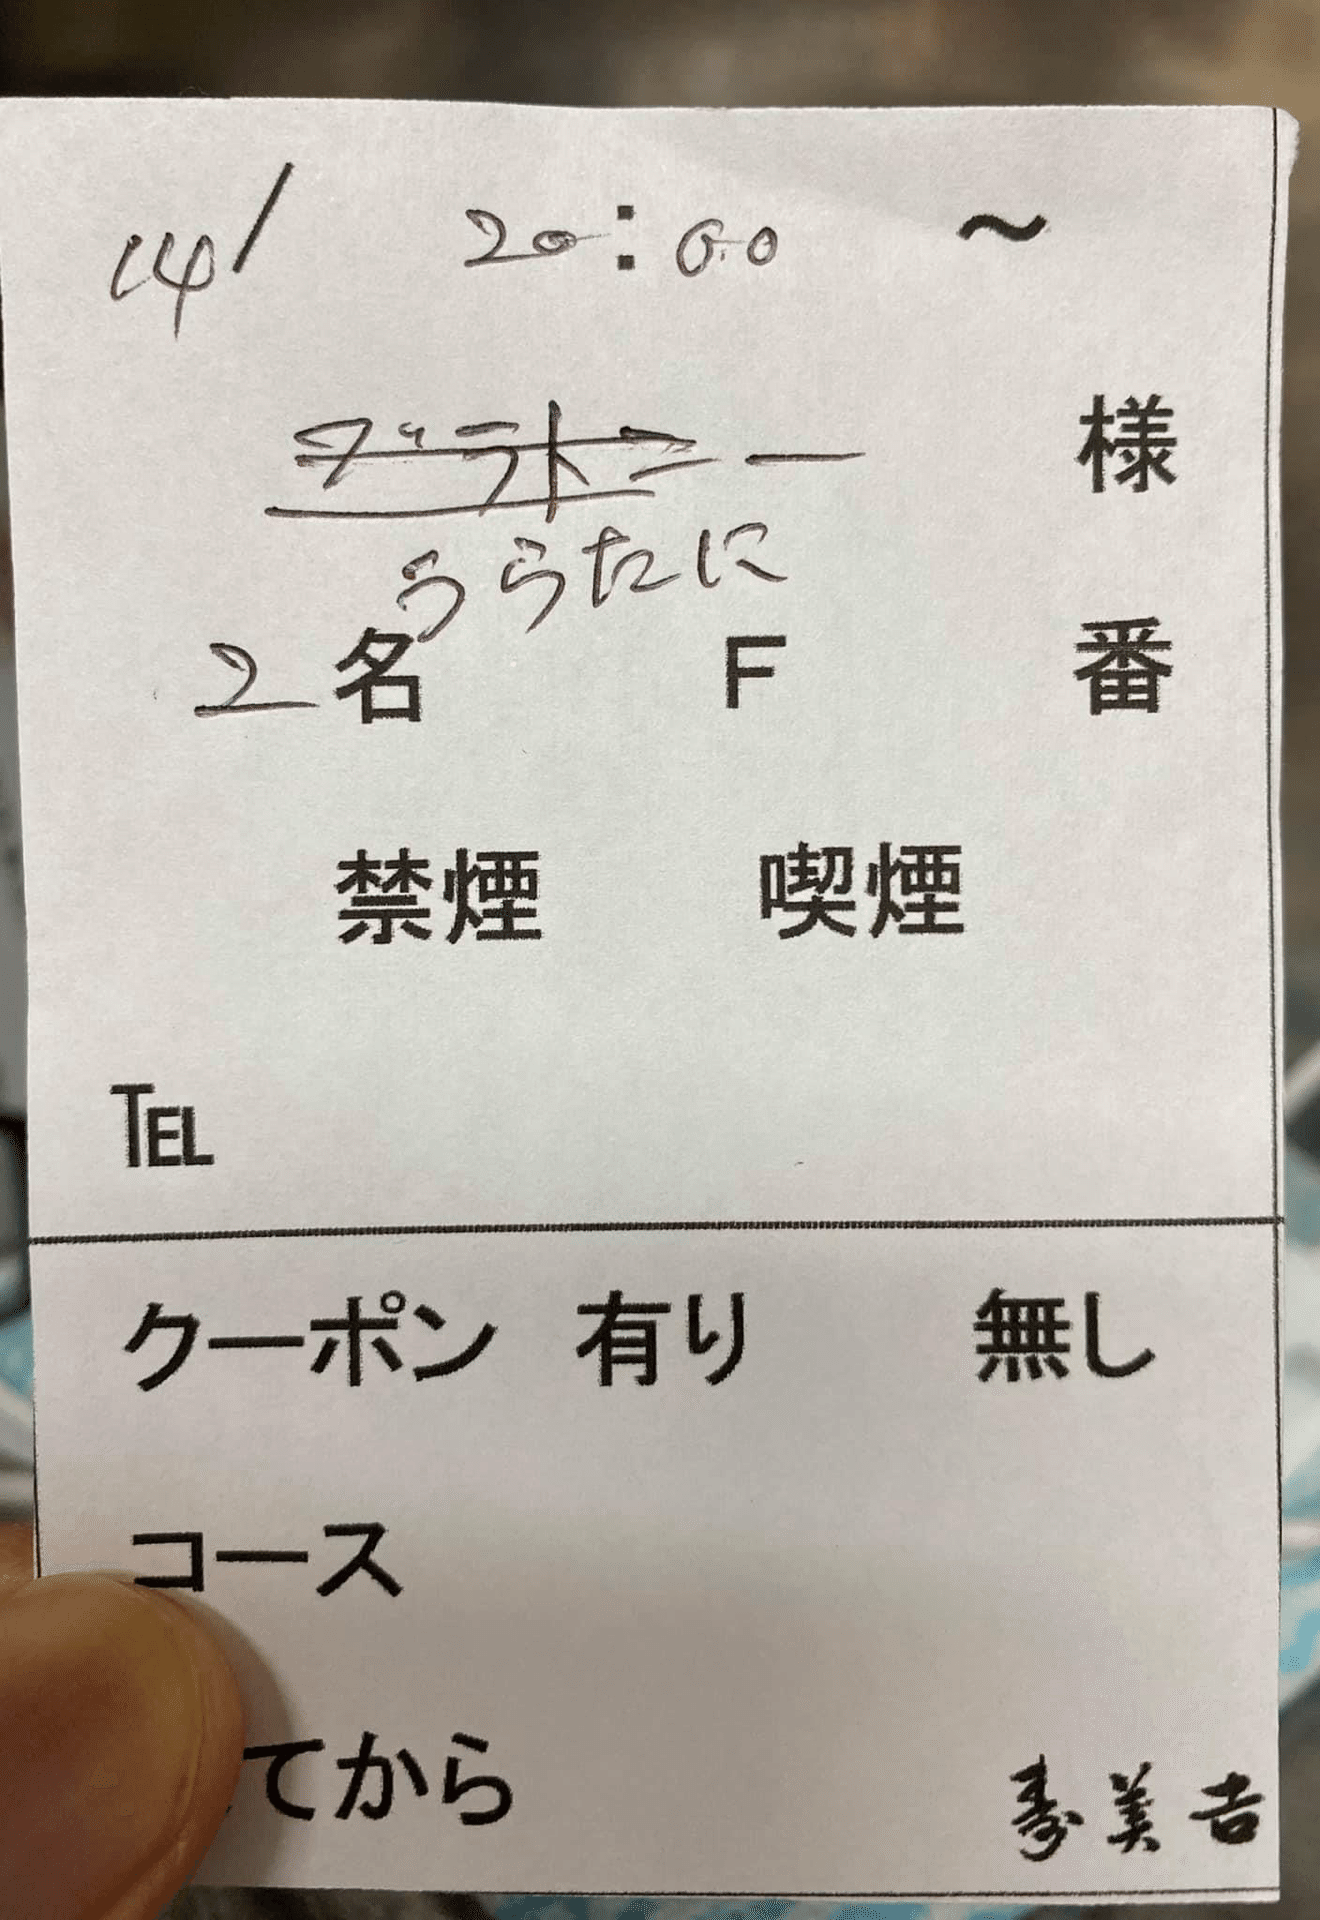 14/ 20:00 ~
様
うらたに
2名 F 番
禁煙 喫煙
TEL
クーポン 有り 無し
コース
てから
寿美吉